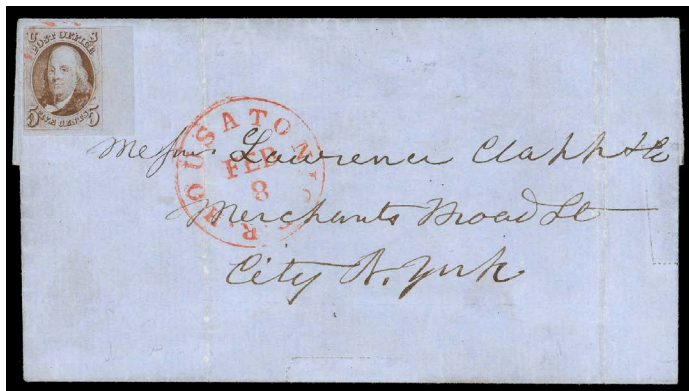 U S
POST OFFICE
FIVE CENTS
5 5
HOUSATONIC R.R.
FEB
8
Messrs Lawrence Clapp & Co
Merchants Broad St
City N. York